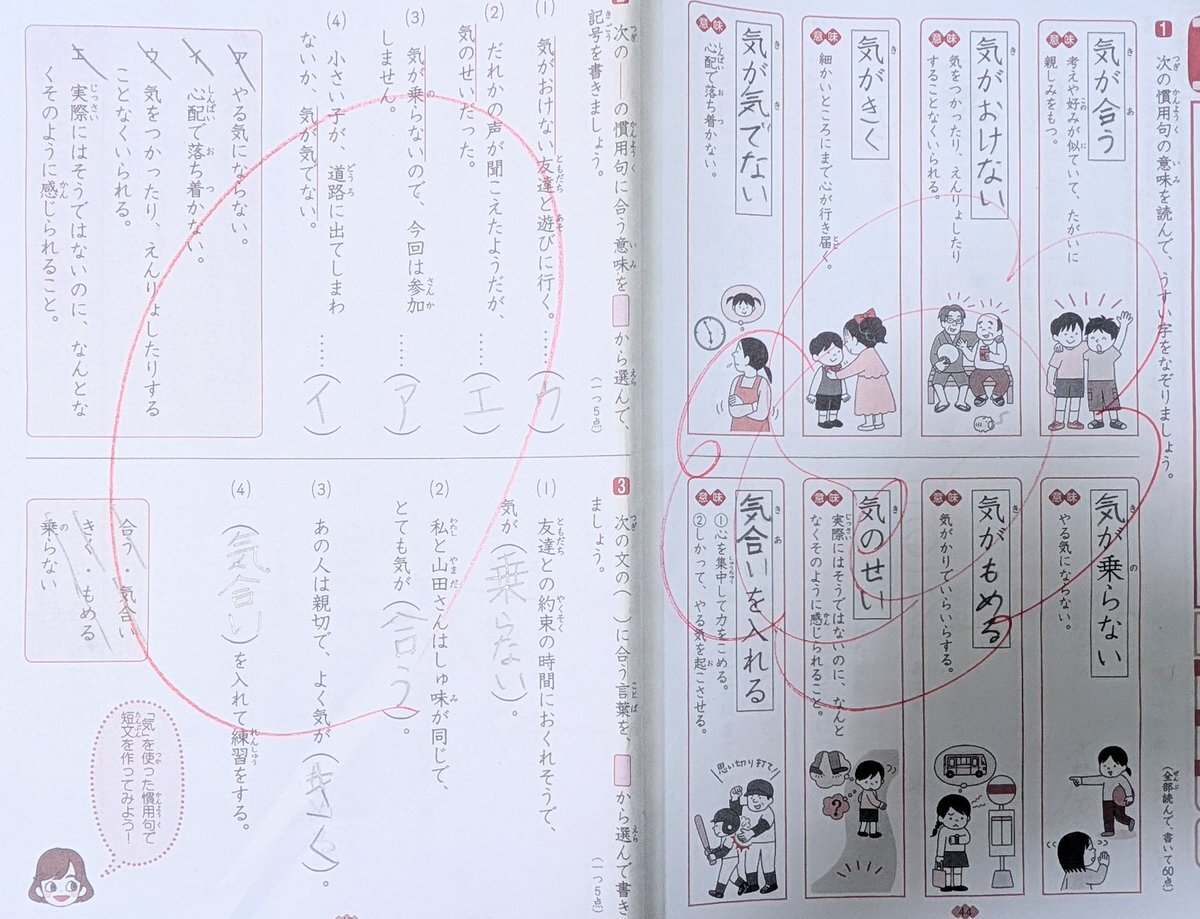 1 次の慣用句の意味を読んで、うすい字をなぞりましょう。
(全部読んで、書いて60点)
気が合う
意味 考えや好みが似ていて、たがいに
親しみをもつ。
気がおけない
意味 気をつかったり、えんりょしたり
することなくいられる。
気がきく
意味 細かいところにまで心が行き届く。
気が気でない
意味 心配で落ち着かない。
気が乗らない
意味 やる気にならない。
気がもめる
意味 気がかりでいらいらする。
気のせい
意味 実際にはそうではないのに、なんと
なくそのように感じられること。
気合いを入れる
意味 ①心を集中して力をこめる。
②しかって、やる気を起こさせる。
思い切り打て!
?
44
2 次の――の慣用句に合う意味を から選んで、
記号を書きましょう。
(一つ5点)
(1) 気がおけない友達と遊びに行く。……(ウ)
(2) だれかの声が聞こえたようだが、
気のせいだった。……(エ)
(3) 気が乗らないので、今回は参加
しません。……(ア)
(4) 小さい子が、道路に出てしまわ
ないか、気が気でない。……(イ)
ア やる気にならない。
イ 心配で落ち着かない。
ウ 気をつかったり、えんりょしたりする
ことなくいられる。
エ 実際にはそうではないのに、なんとな
くそのように感じられること。
3 次の文の( )に合う言葉を、 から選んで書き
ましょう。
(一つ5点)
(1) 友達との約束の時間におくれそうで、
気が(乗らない)。
(2) 私と山田さんはしゅ味が同じで、
とても気が(合う)。
(3) あの人は親切で、よく気が(きく)。
(4) (気合い)を入れて練習をする。
合う・気合い
きく・もめる
乗らない
「気」を使った慣用句で
短文を作ってみよう!